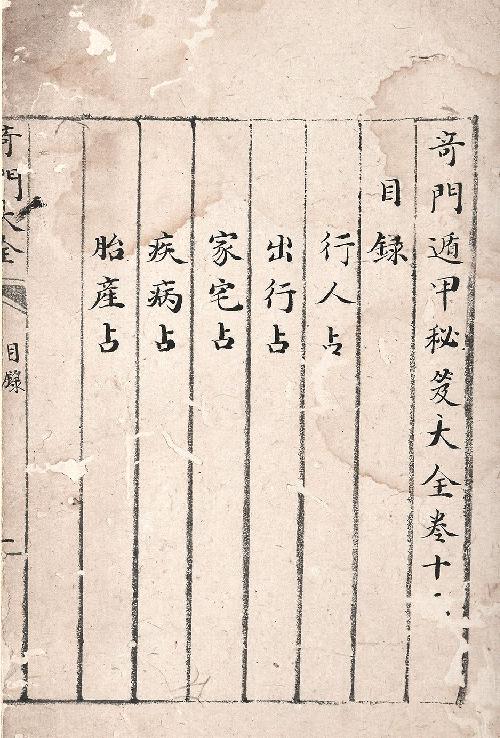 奇門遁甲秘笈大全卷十
目錄
行人占
出行占
家宅占
疾病占
胎產占
奇門大全
目錄
一